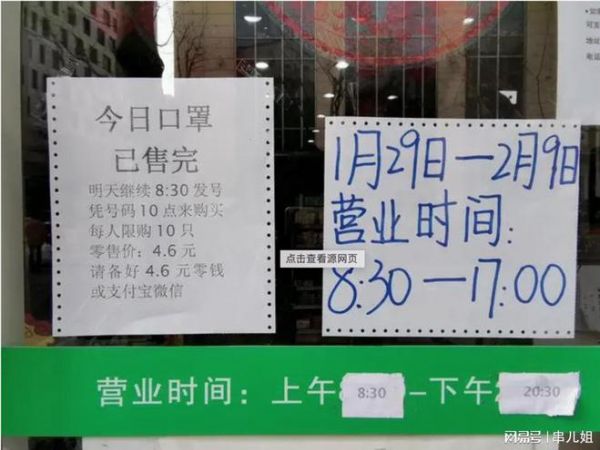 今日口罩
已售完
明天继续 8:30 发号
凭号码 10 点来购买
每人限购 10 只
零售价：4.6 元
请备好 4.6 元零钱
或支付宝微信
1月29日—2月9日
营业时间：
8:30—17:00
点击查看源网页
营业时间：上午 8:30 –下午 20:30
网易号 | 串儿姐